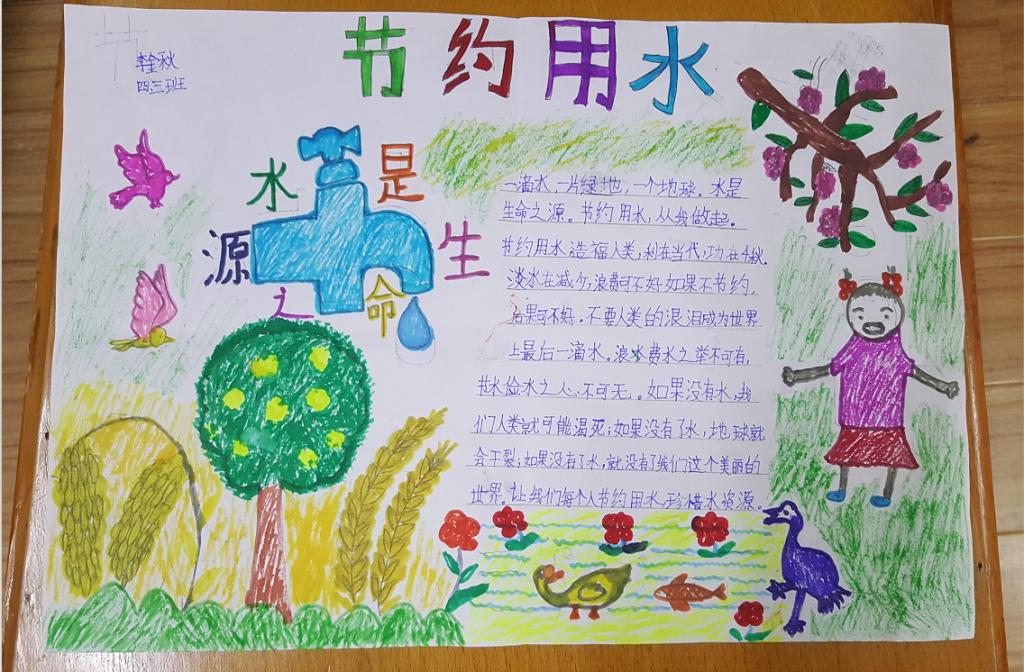 节约用水
秋
四三班
水是生命之源
一滴水，一片绿地，一个地球。水是
生命之源。节约用水，从我做起。
节约用水造福人类，利在当代，功在千秋.
淡水在减少，浪费可不好；如果不节约，
后果可不好。不要人类的泪成为世界
上最后一滴水。浪水费水之举不可有，
节水俭水之心不可无。如果没有水，我
们人类就可能渴死；如果没有了水，地球就
会干裂；如果没有了水，就没有了我们这个美丽的
世界。让我们每个人节约用水，珍惜水资源。